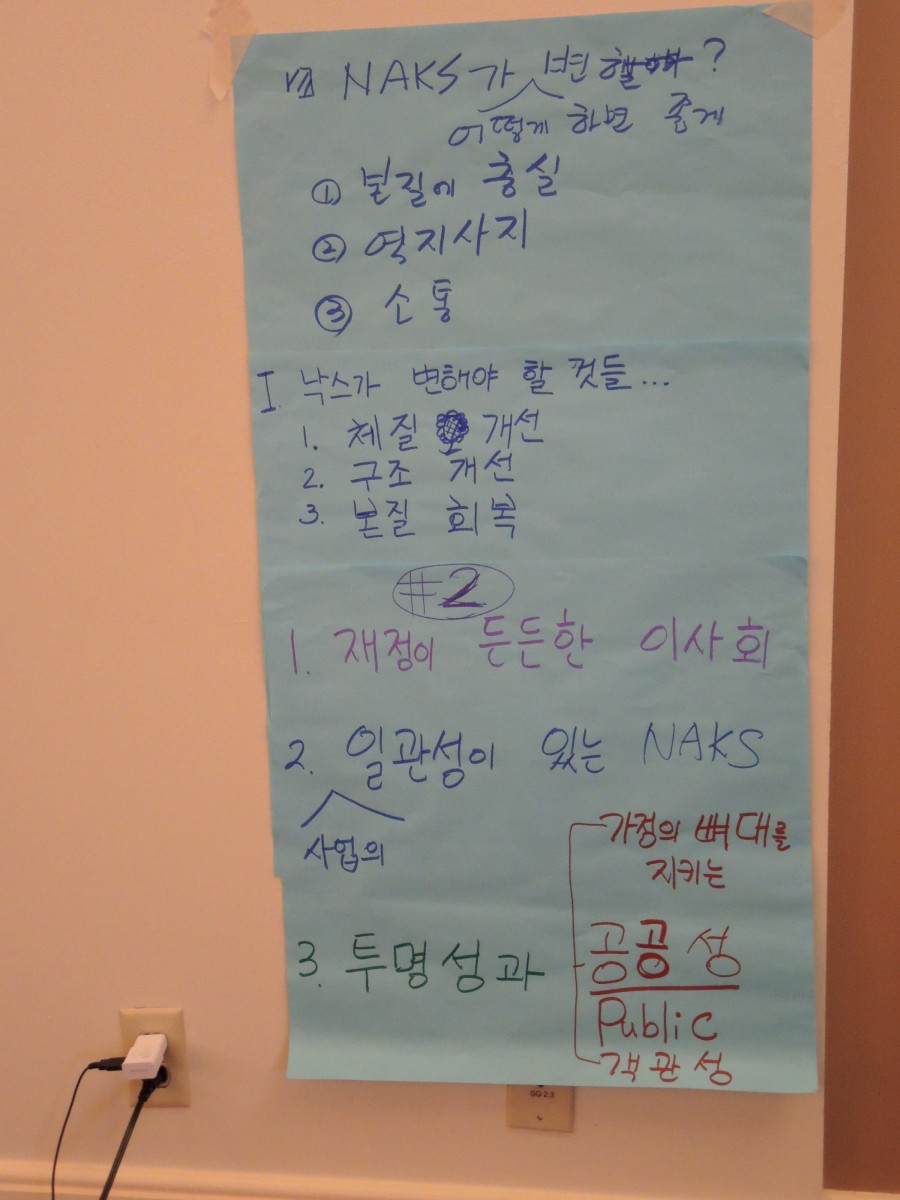 NAKS가 변 ?
어떻게 하면 좋게
① 본질에 충실
② 역지사지
③ 소통
I. 낙스가 변해야 할 것들...
1. 체질 개선
2. 구조 개선
3. 본질 회복
#2
1. 재정이 든든한 이사회
2. 일관성이 있는 NAKS
사업의
가정의 뼈대를
지키는
3. 투명성과 공공성
Public
객관성